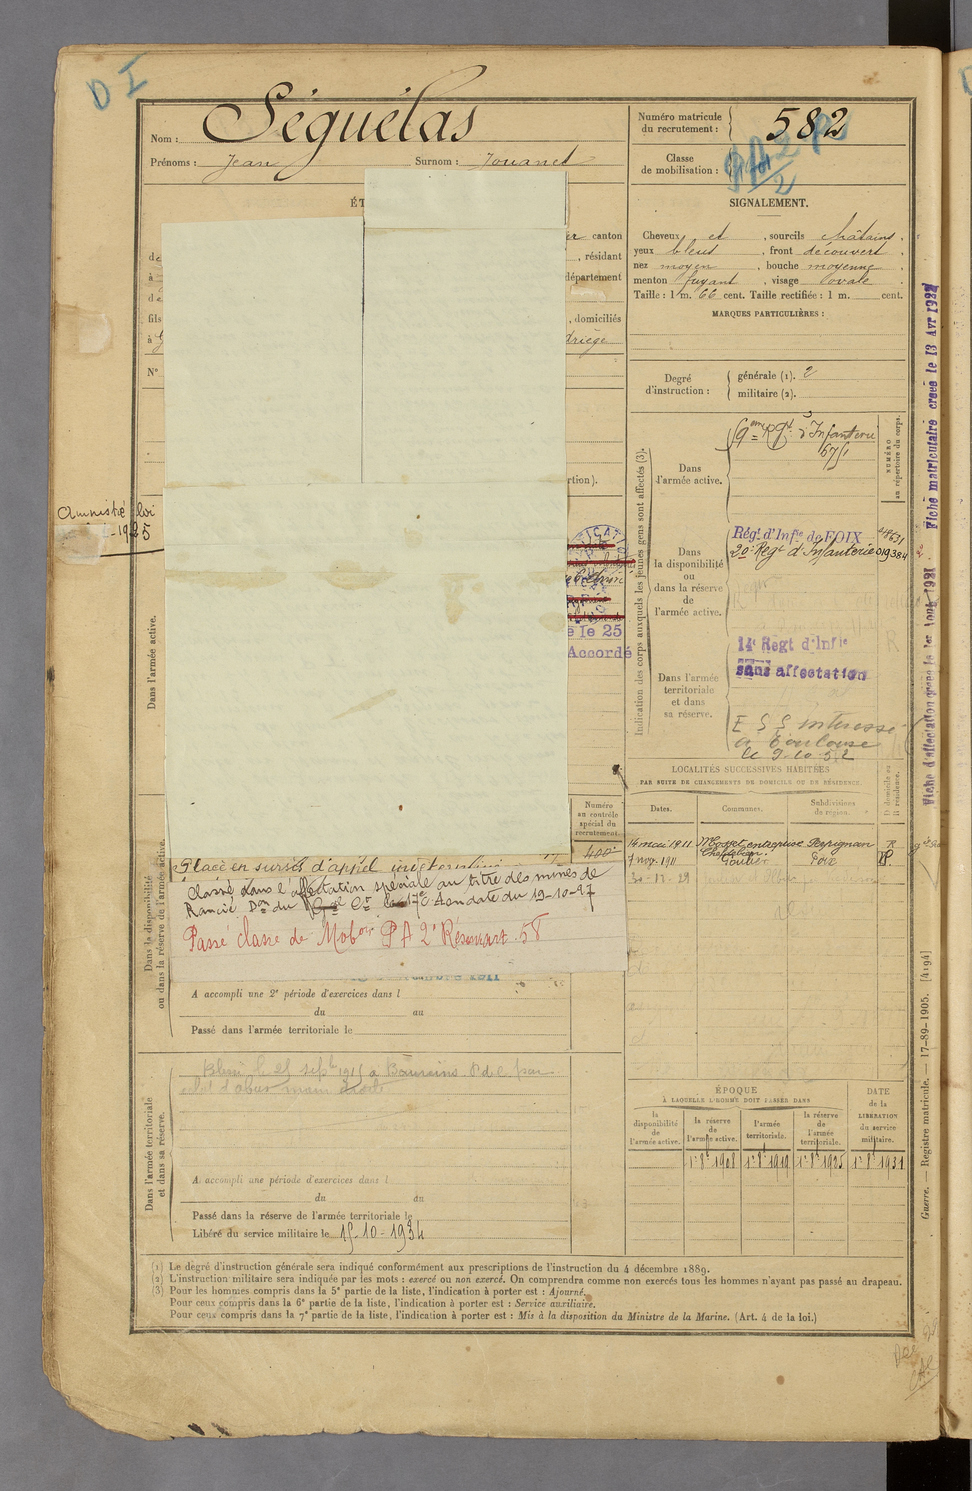 D I
Nom : Séguélas
Prénoms : Jean Surnom : Jouanet
Numéro matricule
du recrutement :
582
Classe
de mobilisation :
SIGNALEMENT.
Cheveux et , sourcils châtains ,
yeux bleus , front découvert ,
nez moyen , bouche moyenne ,
menton fuyant , visage ovale .
Taille : 1 m. 66 cent. Taille rectifiée : 1 m. cent.
MARQUES PARTICULIÈRES :
Degré
d'instruction :
générale (1). 2
militaire (2).
ÉT
canton
, résidant
département
fils
, domiciliés
à
N°
rtion).
Amnistié loi
1925
e le 25
Accordé
Dans l'armée active.
Indication des corps auxquels les jeunes gens sont affectés (3).
Dans
l'armée active.
9eme Rgt d'Infanterie
NUMÉRO
au répertoire du corps.
Dans
la disponibilité
ou
dans la réserve
de
l'armée active.
Régt d'Infie de FOIX
20e Regt d'Infanterie 019384
Dans l'armée
territoriale
et dans
sa réserve.
14e Regt d'Infie
sans affectation
a Toulouse
le 9-10-52
Fiche matriculaire créée le 13 Avr 1932
LOCALITÉS SUCCESSIVES HABITÉES
PAR SUITE DE CHANGEMENTS DE DOMICILE OU DE RÉSIDENCE.
D domicile ou
R résidence.
Dates. Communes. Subdivisions
de région.
16 mai 1911 Mosset entreprise Perpignan R
7 nov. 1911 Foix
Numéro
au contrôle
spécial du
recrutement.
400
Dans la disponibilité
ou dans la réserve de l'armée active.
Placé en sursis d'appel
Classé dans l'affectation spéciale au titre des mines de
Rancié Don du 17e C A en date du 19-10-27
Passé classe de Mobon PA 2
A accompli une 2e période d'exercices dans l
du au
Passé dans l'armée territoriale le
Dans l'armée territoriale
et dans sa réserve.
Blessé le 25 septbre 1915 a P de C par
éclat d'obus main droite
A accompli une période d'exercices dans l
du au
Passé dans la réserve de l'armée territoriale le
Libéré du service militaire le 15-10-1934
ÉPOQUE
À LAQUELLE L'HOMME DOIT PASSER DANS
la
disponibilité
de
l'armée active.
la réserve
de
l'armée active.
l'armée
territoriale.
la réserve
de
l'armée
territoriale.
DATE
de la
LIBÉRATION
du service
militaire.
1er 8bre 1908 1er 8bre 1919 1er 8bre 1925 1er 8bre 1931
Guerre. — Registre matricule. — 17-89-1905. [4194]
(1) Le degré d'instruction générale sera indiqué conformément aux prescriptions de l'instruction du 4 décembre 1889.
(2) L'instruction militaire sera indiquée par les mots : exercé ou non exercé. On comprendra comme non exercés tous les hommes n'ayant pas passé au drapeau.
(3) Pour les hommes compris dans la 5e partie de la liste, l'indication à porter est : Ajourné.
Pour ceux compris dans la 6e partie de la liste, l'indication à porter est : Service auxiliaire.
Pour ceux compris dans la 7e partie de la liste, l'indication à porter est : Mis à la disposition du Ministre de la Marine. (Art. 4 de la loi.)